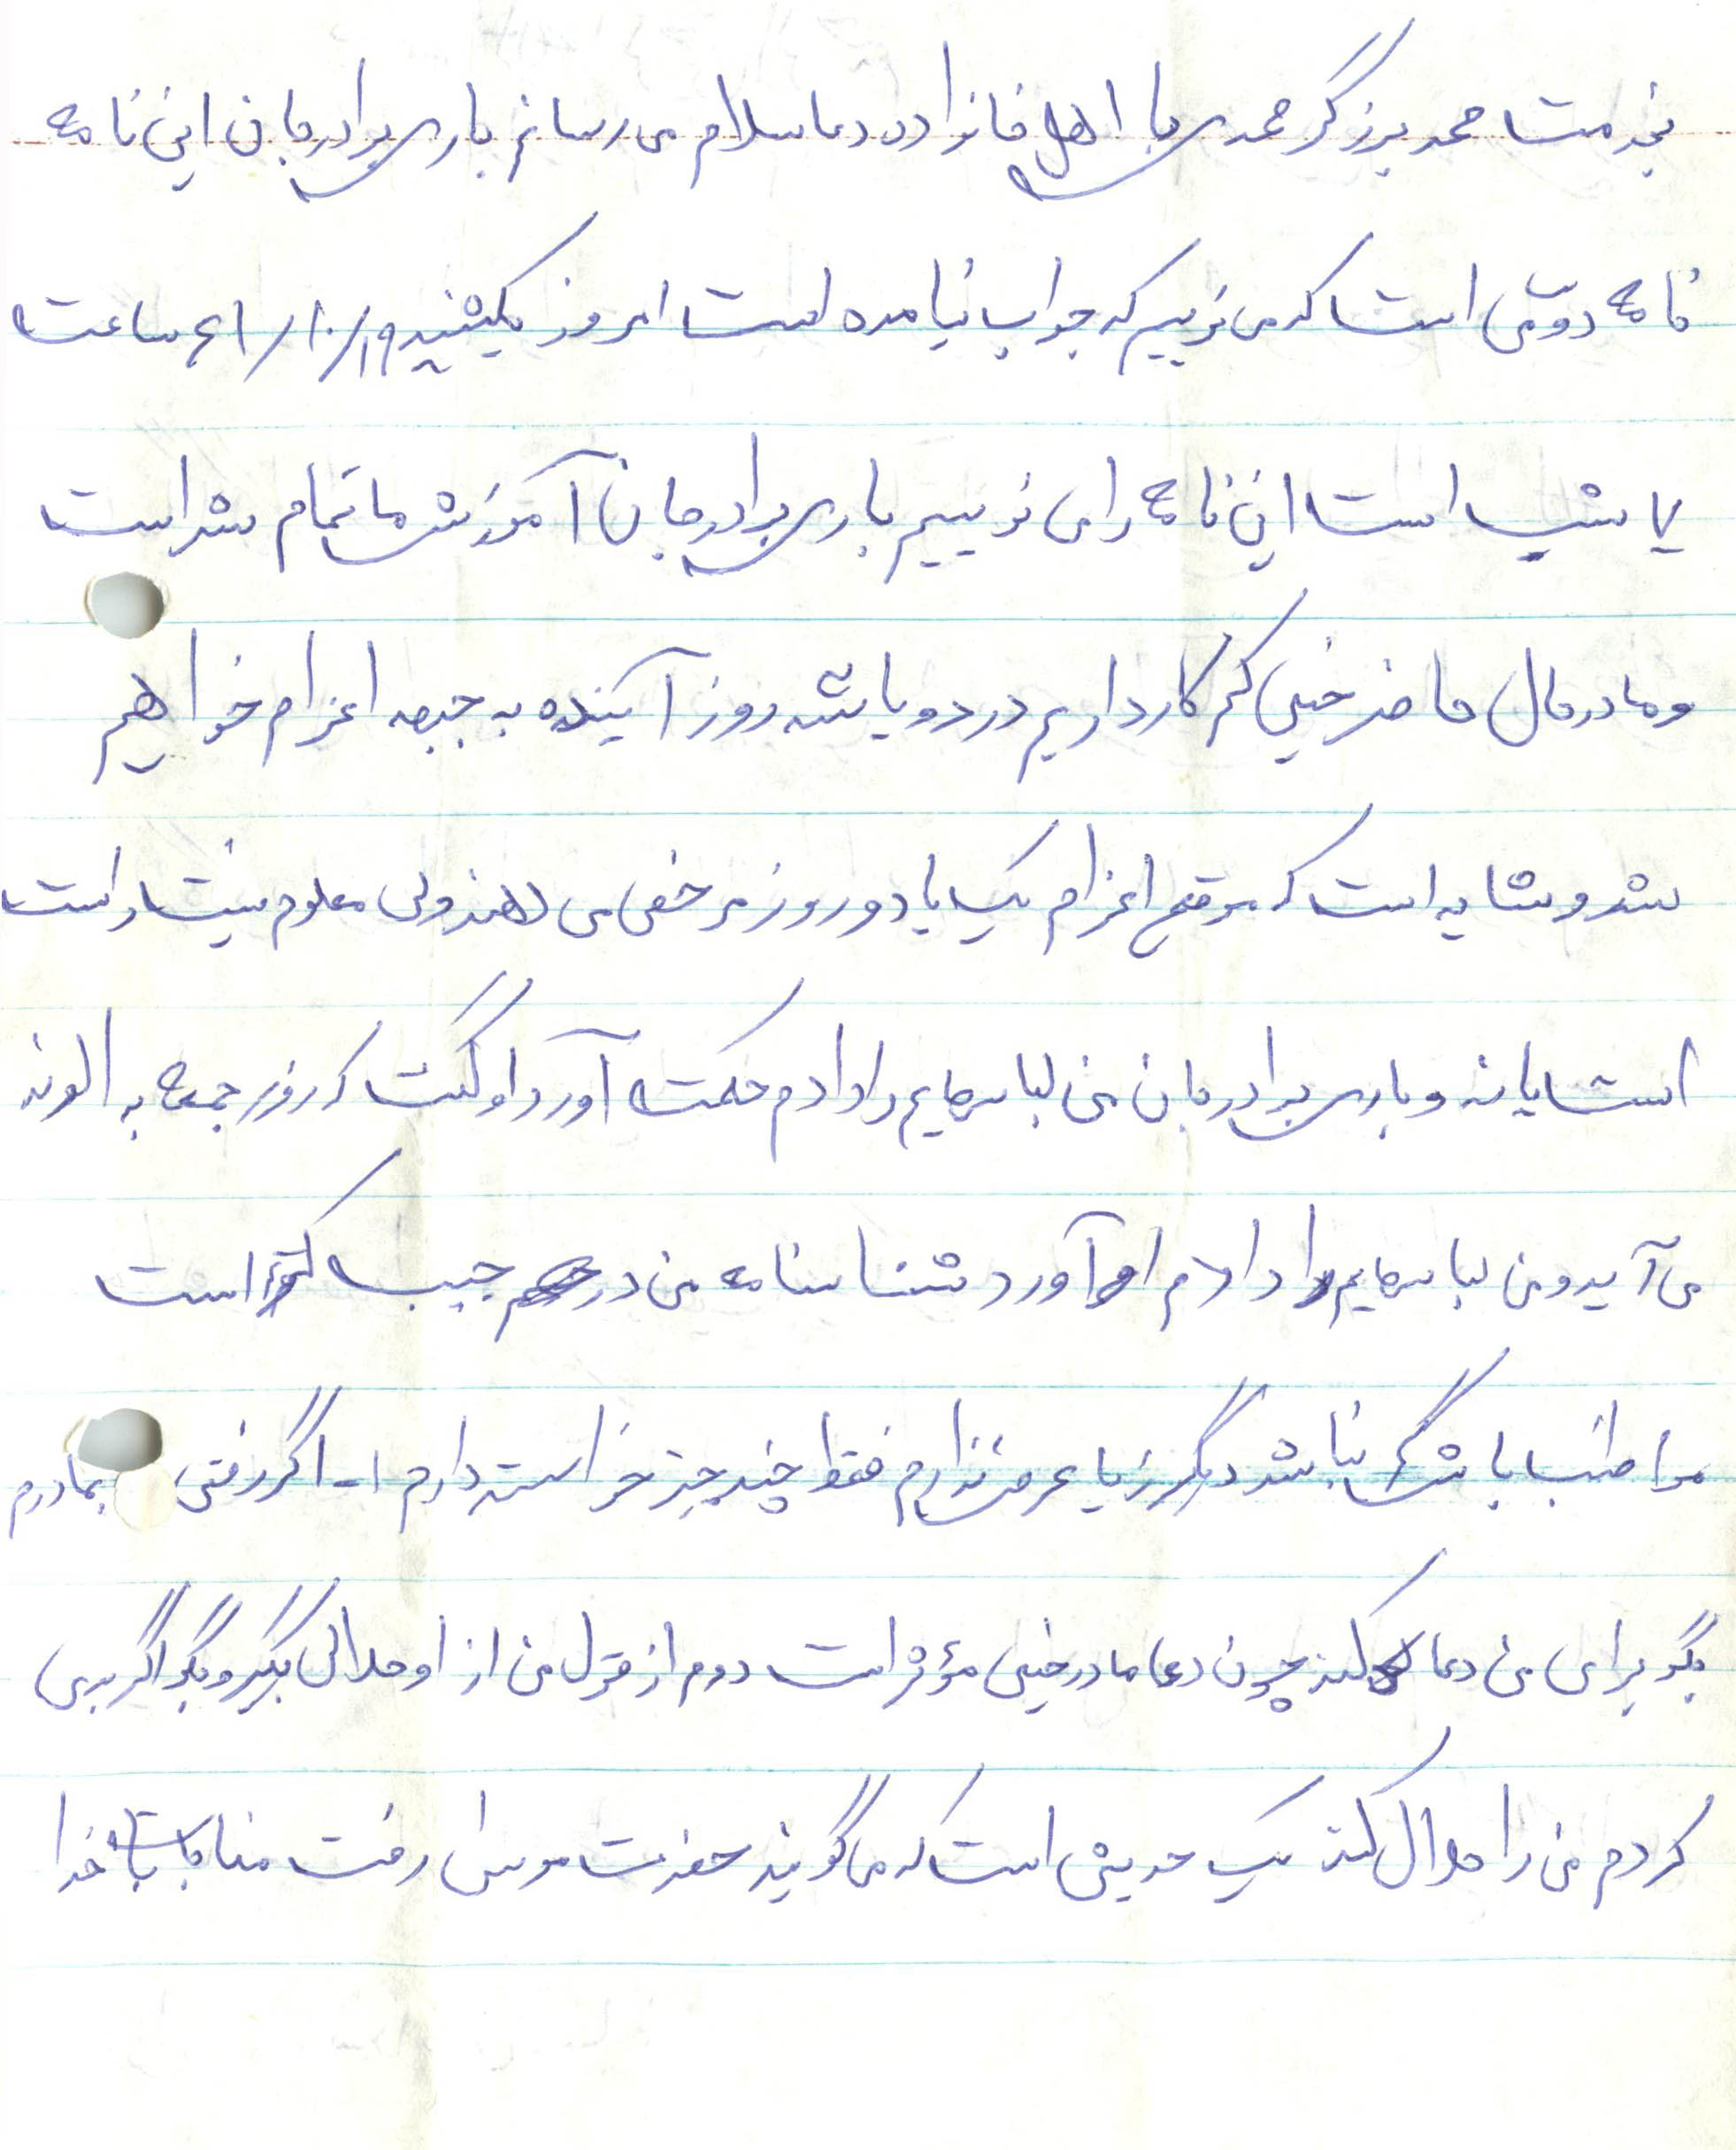 بخدمت محمد برزگر محمدی با اهل خانواده دعا سلام می رسانم باری برادر جان این نامه
نامه دومی است که می نویسم که جواب نیامده است امروز یکشنبه ۶۱/۱۰/۱۹ ساعت
۷ شب است این نامه را می نویسم باری برادر جان آموزش ما تمام شد است
و ما در حال حاضر خیلی کم کار داریم در دو یا سه روز آینده به جبهه اعزام خواهیم
شد و شاید است که موقع اعزام یک یا دو روز مرخصی می دهند ولی معلوم نیست راست
است یا نه و باری برادر جان من لباسهایم را دادم حکمت آورد او گفت که روز جمعه به الوند
می آید و من لباسهایم را دادم او آورد شناسنامه من در جیب است
مواظب باش گم نباشد دیگر زیا عرض ندارم فقط چند چیز خواسته دارم ۱- اگر رفتی بمادرم
بگو برای من دعا کند چون دعا مادر خیلی مؤثر است دوم از قول من از او حلالی بگیر و بگو اگر بدی
کردم من را حلال کند یک حدیثی است که می گویند حضرت موسی رفت مناجات با خدا